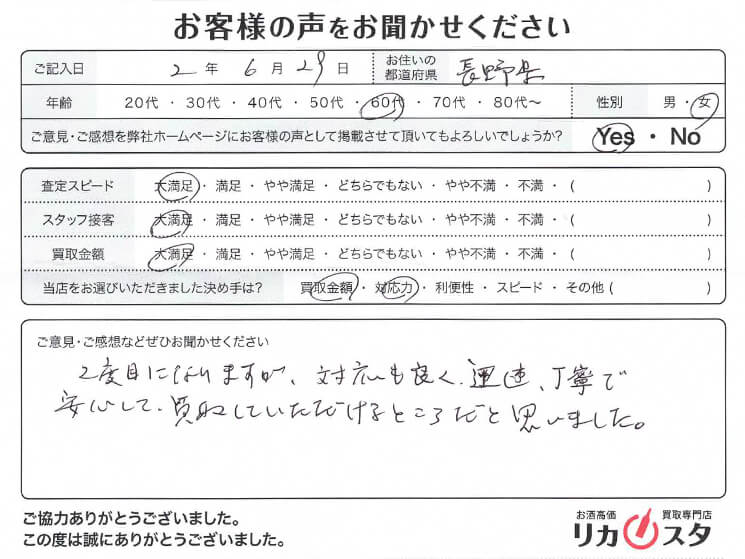 お客様の声をお聞かせください
ご記入日 2 年 6 月 29 日 お住いの都道府県 長野県
年齢 20代 ・ 30代 ・ 40代 ・ 50代 ・ 60代 ・ 70代 ・ 80代〜 性別 男 ・ 女
ご意見・ご感想を弊社ホームページにお客様の声として掲載させて頂いてもよろしいでしょうか? Yes ・ No
査定スピード 大満足 ・ 満足 ・ やや満足 ・ どちらでもない ・ やや不満 ・ 不満 ・ ( )
スタッフ接客 大満足 ・ 満足 ・ やや満足 ・ どちらでもない ・ やや不満 ・ 不満 ・ ( )
買取金額 大満足 ・ 満足 ・ やや満足 ・ どちらでもない ・ やや不満 ・ 不満 ・ ( )
当店をお選びいただきました決め手は? 買取金額 ・ 対応力 ・ 利便性 ・ スピード ・ その他 ( )
ご意見・ご感想などぜひお聞かせください
2度目になりますが、対応も良く、迅速、丁寧で
安心して、買取していただけるところだと思いました。
ご協力ありがとうございました。
この度は誠にありがとうございました。
お酒高価 買取専門店
リカスタ